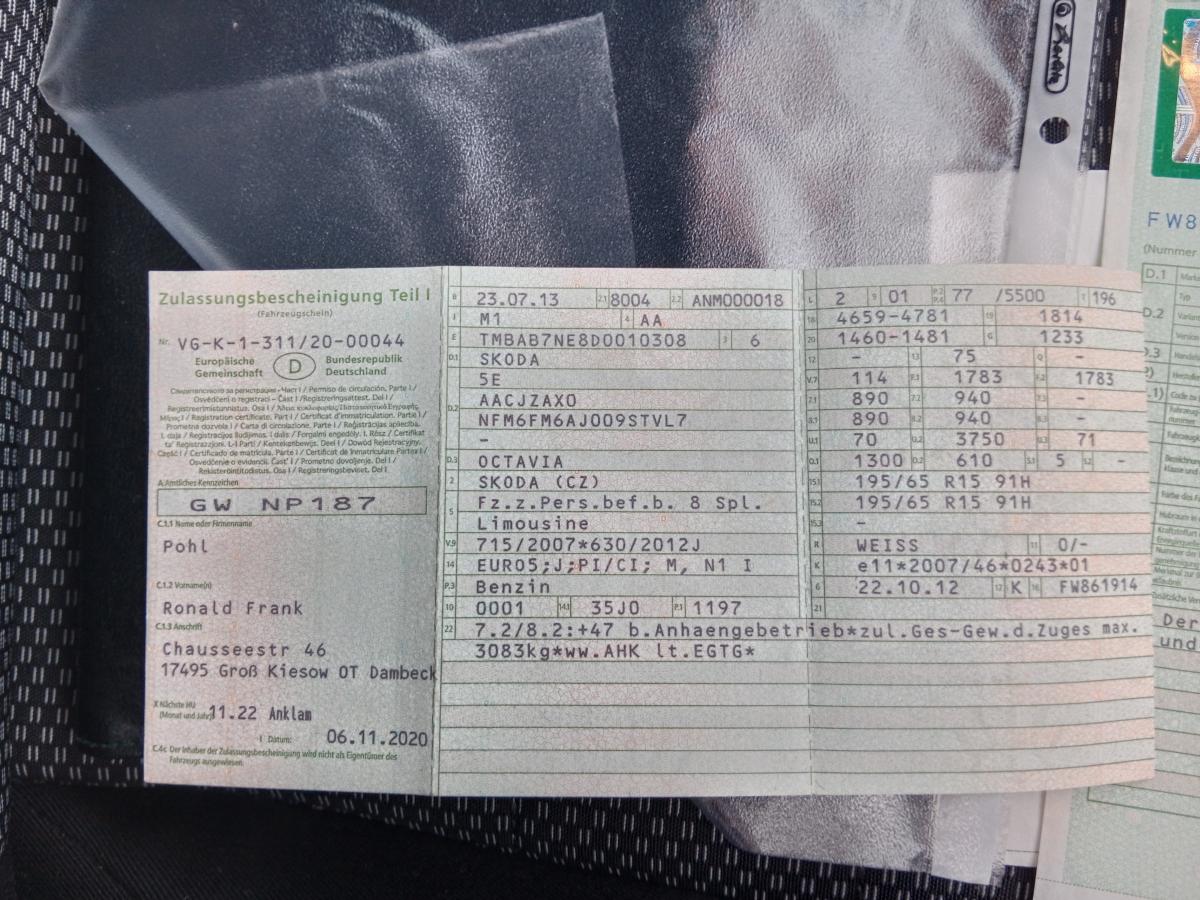 Zulassungsbescheinigung Teil I
(Fahrzeugschein)
Nr. VG-K-1-311/20-00044
Europäische Gemeinschaft D Bundesrepublik Deutschland
Osvědčení o registraci - Část I / Registreringsattest. Del I /
A Amtliches Kennzeichen
GW NP187
C.1.1 Name oder Firmenname
Pohl
C.1.2 Vorname(n)
Ronald Frank
C.1.3 Anschrift
Chausseestr 46
17495 Groß Kiesow OT Dambeck
X Nächste HU
(Monat und Jahr) 11.22 Anklam
I Datum: 06.11.2020
C.4c Der Inhaber der Zulassungsbescheinigung wird nicht als Eigentümer des
Fahrzeugs ausgewiesen.
B 23.07.13 2.1 8004 2.2 ANM000018
J M1 4 AA
E TMBAB7NE8D0010308 3 6
D.1 SKODA
5E
D.2 AACJZAX0
NFM6FM6AJ009STVL7
–
D.3 OCTAVIA
2 SKODA (CZ)
5 Fz.z.Pers.bef.b. 8 Spl.
Limousine
V.9 715/2007*630/2012J
14 EURO5;J;PI/CI; M, N1 I
P.3 Benzin
10 0001 14.1 35J0 P.1 1197
22 7.2/8.2:+47 b.Anhaengebetrieb*zul.Ges-Gew.d.Zuges max.
3083kg*ww.AHK lt.EGTG*
L 2 9 01 P.2 P.4 77 /5500 T 196
18 4659-4781 19 1814
20 1460-1481 G 1233
12 – 13 75 Q –
V.7 114 F.1 1783 F.2 1783
7.1 890 7.2 940 7.3 –
8.1 890 8.2 940 8.3 –
U.1 70 U.2 3750 U.3 71
O.1 1300 O.2 610 S.1 5 S.2 –
15.1 195/65 R15 91H
15.2 195/65 R15 91H
15.3 –
R WEISS 11 0/-
K e11*2007/46*0243*01
6 22.10.12 17 K 16 FW861914
21
FW8
(Nummer
D.1
D.2
Der
und